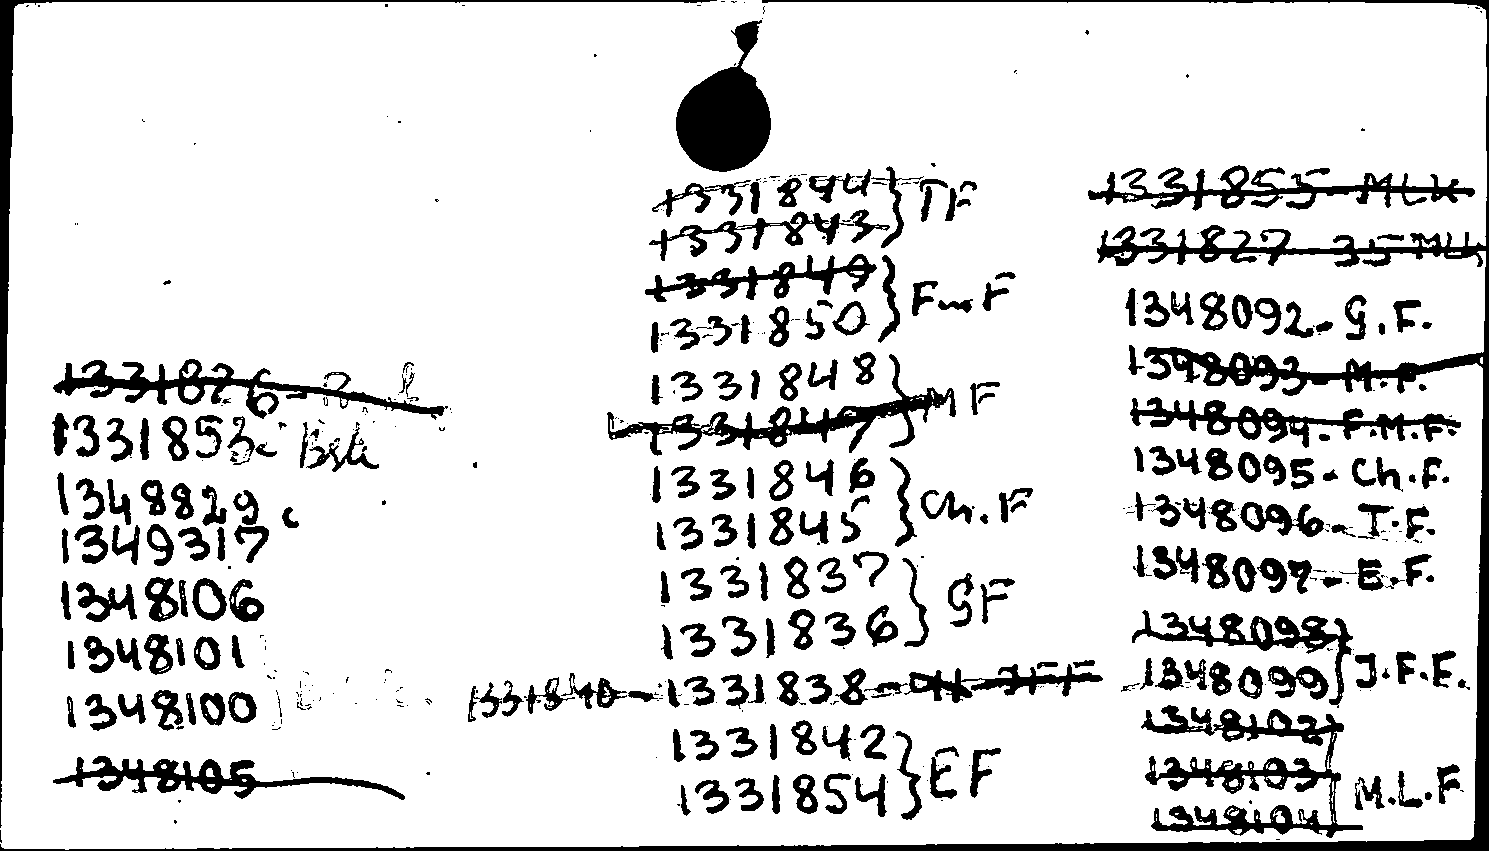 1331826-
1331853- Bsk
1348829
1349317
1348106
1348101
1348100
1348105
1331844 } TF
1331843
1331849 } FmF
1331850
1331848 } MF
1331847
1331846 } Ch.F
1331845
1331837 } GF
1331836
1331840 - 1331838 - JFF
1331842 } EF
1331854
1331855 - MLK
1331827 - 35 MLK
1348092 - G.F.
1348093 - M.F.
1348094 - F.M.F.
1348095 - Ch.F.
1348096 - T.F.
1348097 - E.F.
1348098 }
1348099 } J.F.E.
1348102 }
1348103 } M.L.F
1348104 }